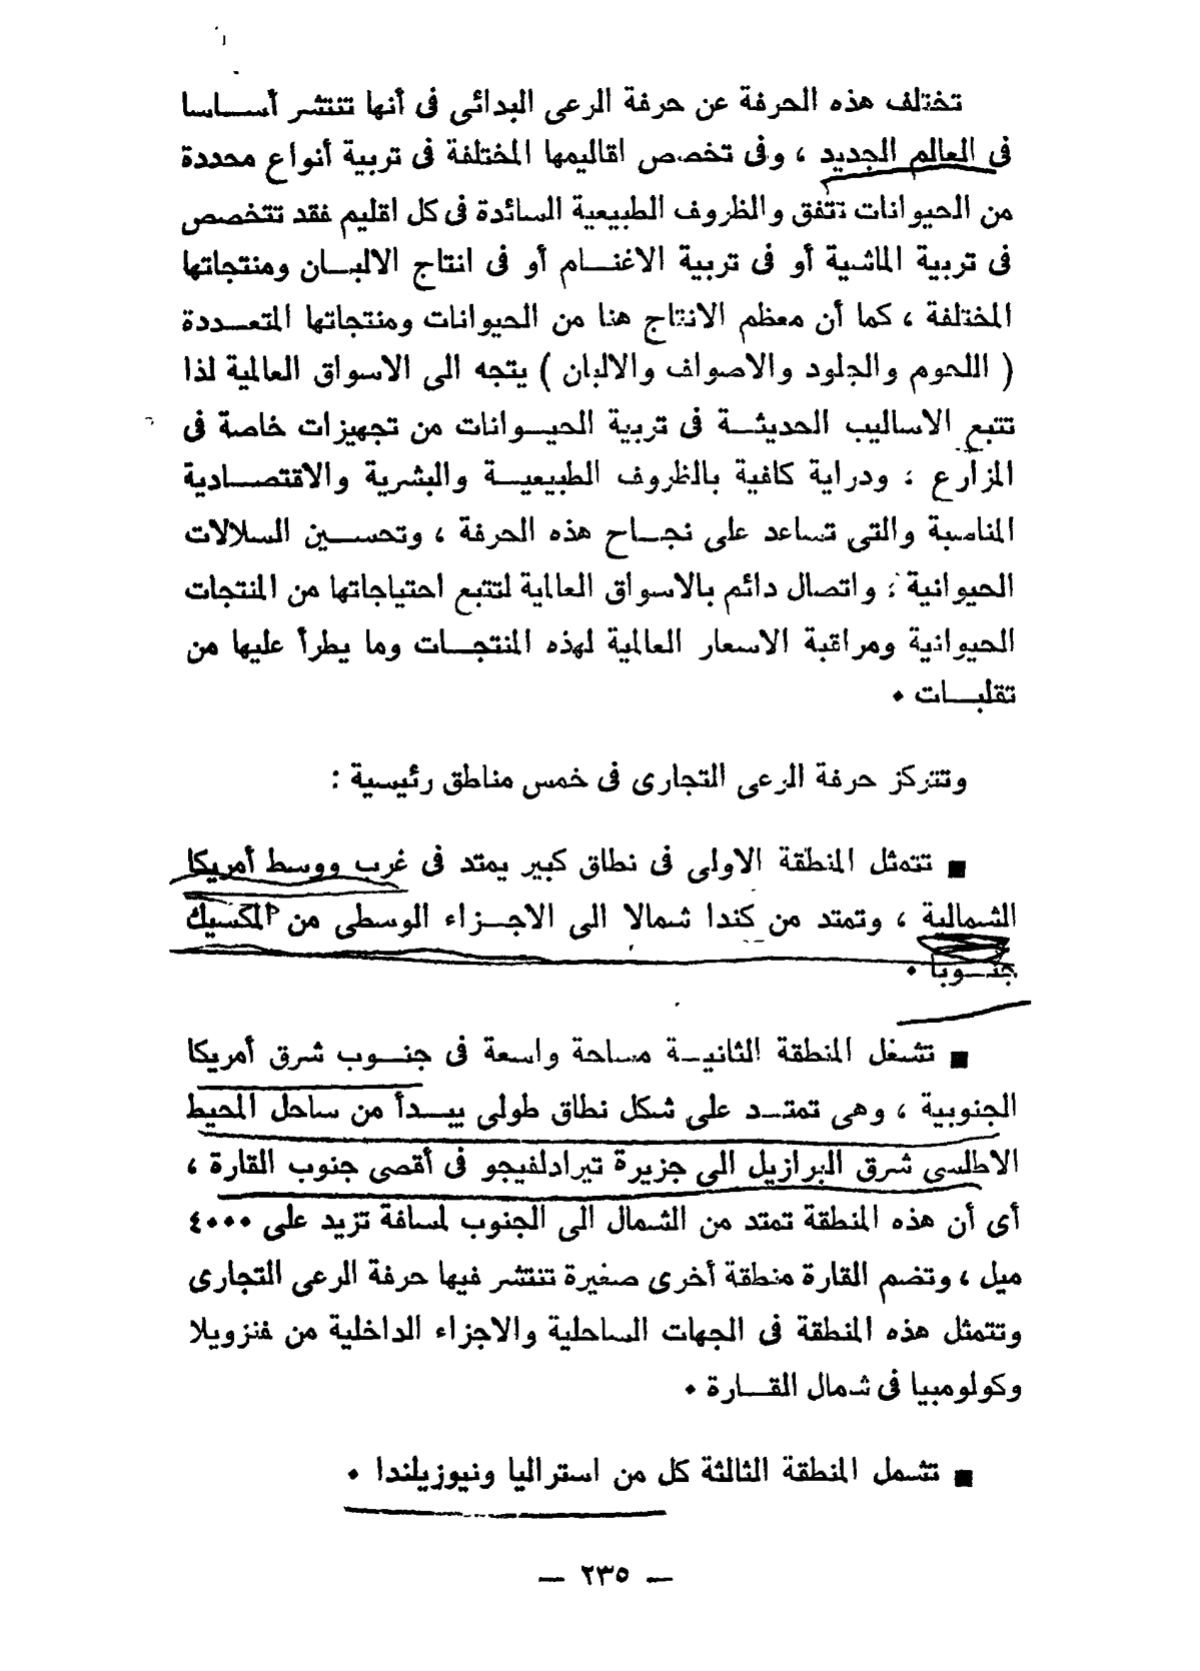 تختلف هذه الحرفة عن حرفة الرعى البدائى فى أنها تنتشر أساسا
فى العالم الجديد ، وفى تخصص اقاليمها المختلفة فى تربية أنواع محددة
من الحيوانات تتفق والظروف الطبيعية السائدة فى كل اقليم فقد تتخصص
فى تربية الماشية أو فى تربية الاغنام أو فى انتاج الالبان ومنتجاتها
المختلفة ، كما أن معظم الانتاج هنا من الحيوانات ومنتجاتها المتعددة
( اللحوم والجلود والاصواف والالبان ) يتجه الى الاسواق العالمية لذا
تتبع الاساليب الحديثة فى تربية الحيوانات من تجهيزات خاصة فى
المزارع ، ودراية كافية بالظروف الطبيعية والبشرية والاقتصادية
المناسبة والتى تساعد على نجاح هذه الحرفة ، وتحسين السلالات
الحيوانية ، واتصال دائم بالاسواق العالمية لتتبع احتياجاتها من المنتجات
الحيوانية ومراقبة الاسعار العالمية لهذه المنتجات وما يطرأ عليها من
تقلبات ٠
وتتركز حرفة الرعى التجارى فى خمس مناطق رئيسية :
■ تتمثل المنطقة الاولى فى نطاق كبير يمتد فى غرب ووسط أمريكا
الشمالية ، وتمتد من كندا شمالا الى الاجزاء الوسطى من المكسيك
جنوبا ٠
■ تشغل المنطقة الثانية مساحة واسعة فى جنوب شرق أمريكا
الجنوبية ، وهى تمتد على شكل نطاق طولى يبدأ من ساحل المحيط
الاطلسى شرق البرازيل الى جزيرة تيرادلفيجو فى أقصى جنوب القارة ،
أى أن هذه المنطقة تمتد من الشمال الى الجنوب لمسافة تزيد على ٤٠٠٠
ميل ، وتضم القارة منطقة أخرى صغيرة تنتشر فيها حرفة الرعى التجارى
وتتمثل هذه المنطقة فى الجهات الساحلية والاجزاء الداخلية من فنزويلا
وكولومبيا فى شمال القارة ٠
■ تشمل المنطقة الثالثة كل من استراليا ونيوزيلندا ٠
— ٢٣٥ —